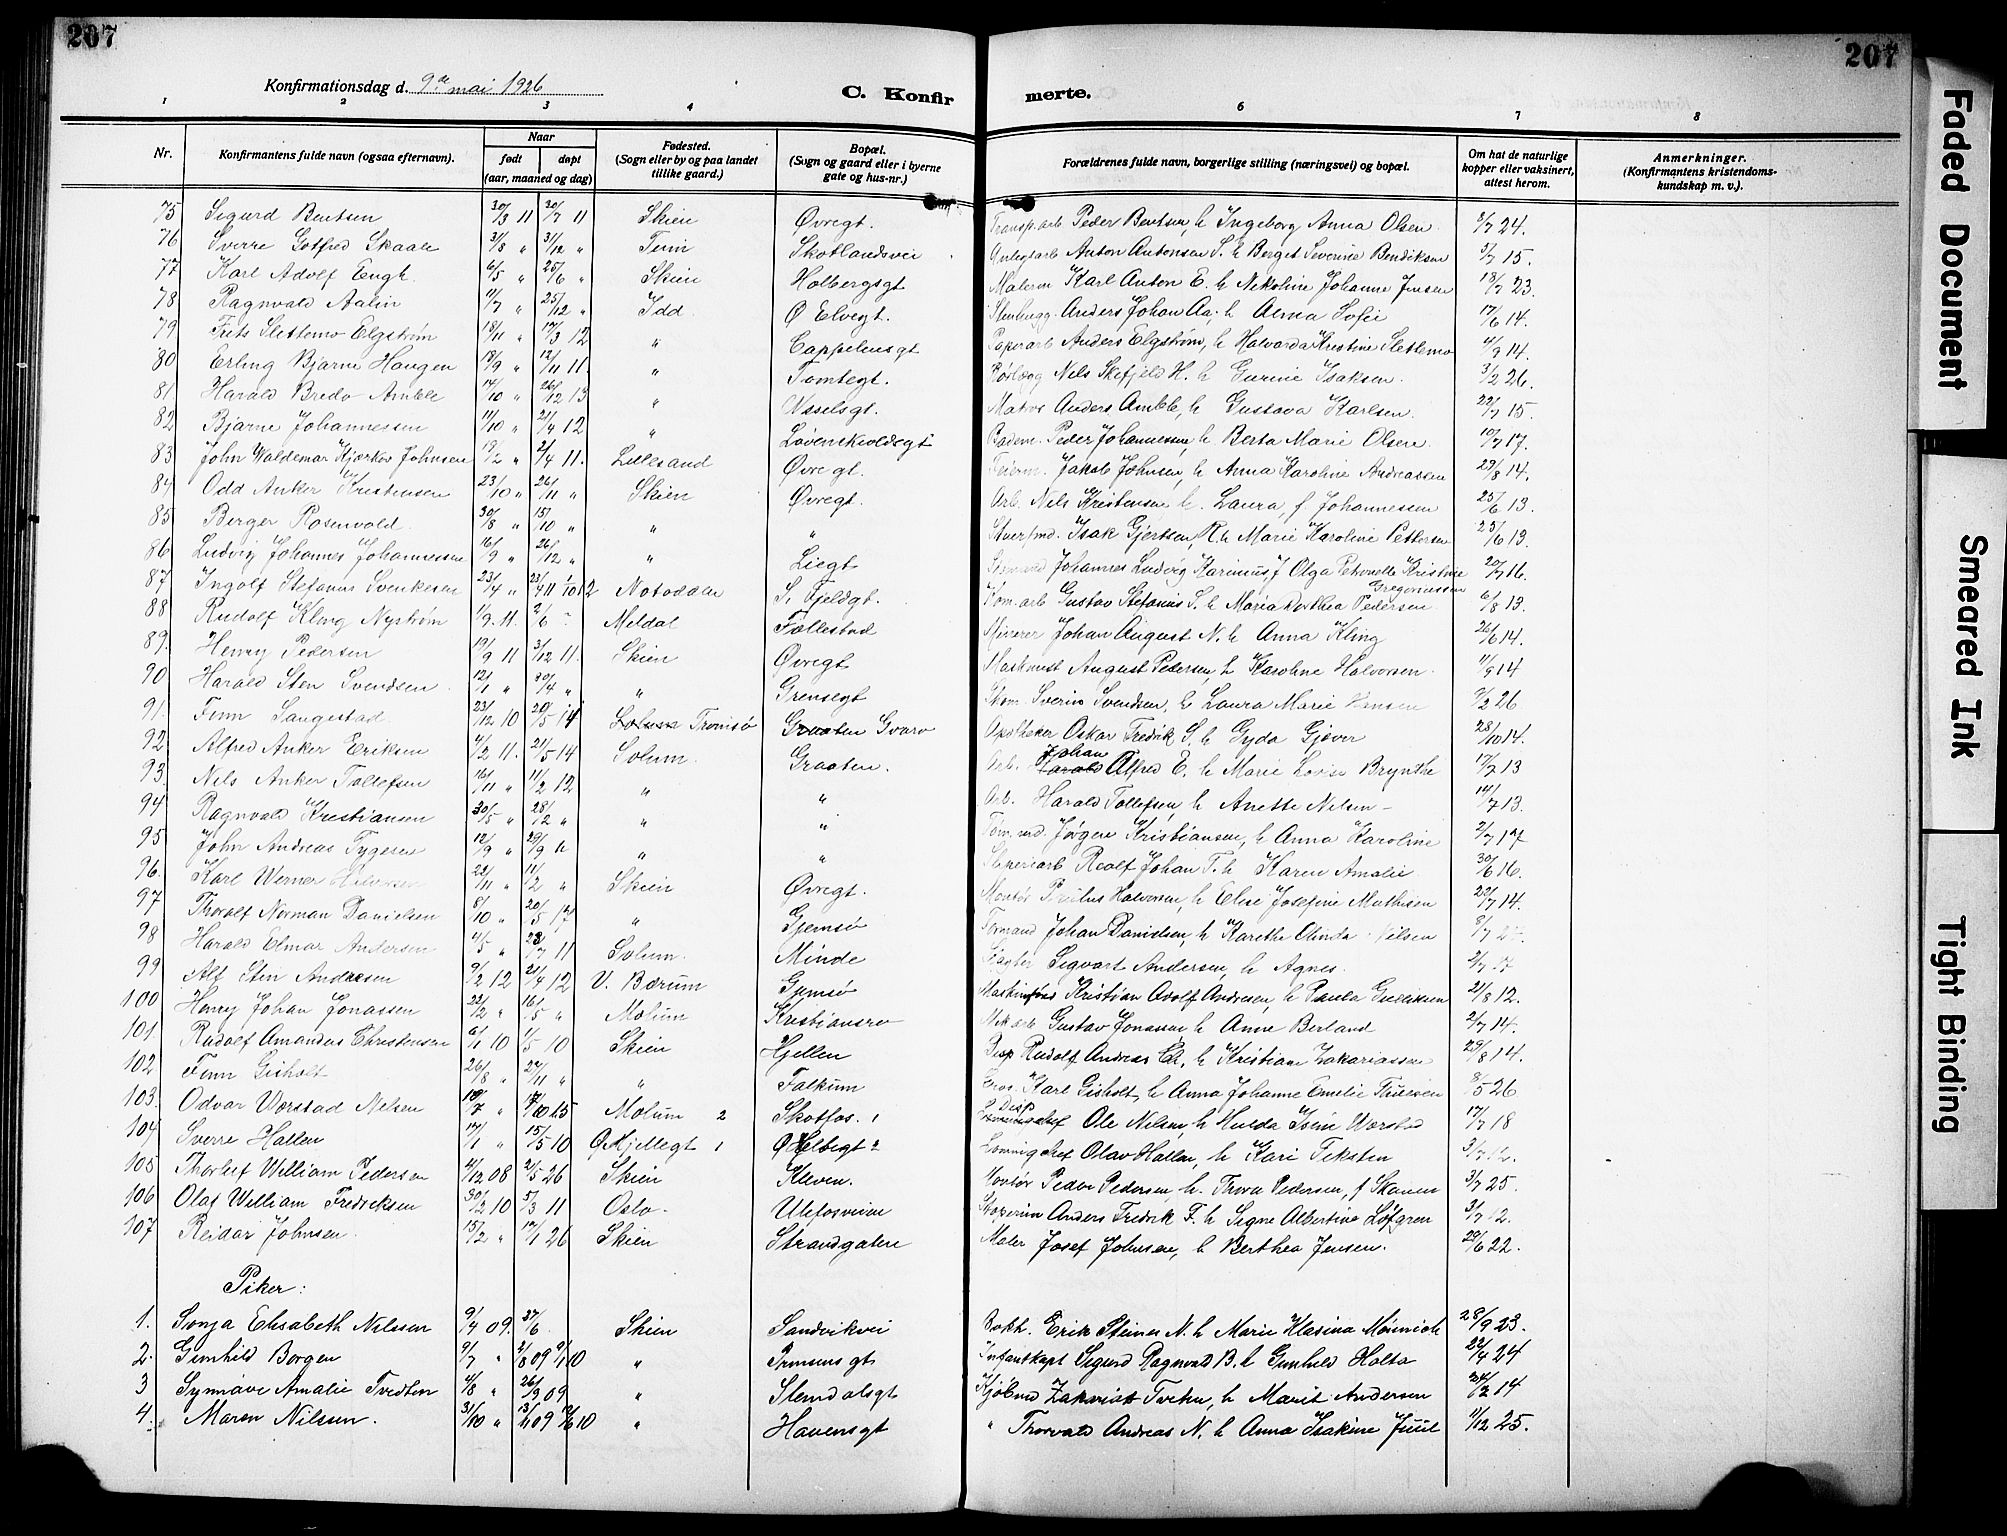 207
207
Konfirmationsdag d. 9de mai 1926
C. Konfir merte.
1 2 3 4 5 6 7 8
Nr. Konfirmantens fulde navn (ogsaa efternavn). Naar født døpt (aar, maaned og dag) Fødested. (Sogn eller by og paa landet tillike gaard.) Bopæl. (Sogn og gaard eller i byerne gate og hus-nr.) Forældrenes fulde navn, borgerlige stilling (næringsvei) og bopæl. Om hat de naturlige kopper eller vaksinert, attest herom. Anmerkninger. (Konfirmantens kristendoms-kundskap m. v.).
75 Sigurd Bentsen 30/3 11 30/7 11 Skien Øvregt. Transp.arb Peder Bentsen, h Ingeborg Anna Olsen 24.
76 Sverre Gotfred Skaale 3/8 " 3/12 " Skotlandsvei Anton Antonsen S. h Berget Severine Bendiksen 5/7 15.
77 Karl Adolf Engh 6/5 " 25/6 " Skien Holbergsgt Malerm Karl Anton E. h Nekoline Johanne Jensen 18/7 23
78 Ragnvald Aalin 11/7 " 25/12 " Idd Ø Elvegt. Anders Johan Aa. h Alma Sofie 17/6 14.
79 Frits Slettemo Elgstrøm 18/11 " 17/3 12 " Cappelensgt Papirarb Anders Elgstrøm, h Halvarda Kristine Slettemo 4/9 14.
80 Erling Bjarne Haugen 18/9 " 12/11 11. " Tomtegt. Rørlægg Nils Skefjeld H. h Gurine Isaksen. 3/2 26.
81 Harald Bredo Amble 14/10 " 26/12 13 " Wesselsgt. Matros Anders Amble, h Gustava Karlsen. 22/7 15.
82 Bjarne Johannessen 11/10 " 21/4 12 " Løvenskioldsgt Badem. Peder Johannessen, h Berta Marie Olsen. 10/7 17.
83 John Waldemar Kjærkov Johnsen 19/2 " 2/4 11. Lillesand Øvregt. Feierm. Jakob Johnsen, h Anna Karoline Andreassen 29/8 14.
84 Odd Anker Kristensen 23/10 " 26/11 " Skien Øvregt. Arb. Nils Kristensen h. Laura, f. Johannessen 25/6 13.
85 Berger Rosenvold 30/8 " 15/10 " " " Isak Gjertsen, R. h Marie Karoline Pettersen 25/6 13.
86 Ludvig Johannes Johannessen 16/9 " 26/12 " " Liegt Johannes Ludvig Karinius, f Olga Petronelle Kristine Gregoriussen 20/7 16.
87 Ingolf Stefanus Svenkesen 23/4 " 23/4 11 1/10 12 Notodden S. Fjeldgt. Kom.arb Gustav Stefanius S. h Maria Dorthea Pedersen 6/8 13.
88 Rudolf Kling Nystrøm 1/2 11. 2/6 " Meldal Follestad Minerer Johan August N. h Anna Kling 26/6 14.
89. Henry Pedersen 19/9 11 3/12 11. Skien Øvregt Maskinist August Pedersen, h Karoline Halvorsen. 11/9 14
90 Harald Sten Svendsen. 12/1 " 30/4 " " Grensegt Skom. Sverin Svendsen, h Laura Marie Hansen 2/2 26
91. Finn Saugestad 23/12 10 20/5 14 Solum Tromsø Graaten Gvarv Apotheker Oskar Fredrik S. h Gyda Gjæver 28/10 14.
92 Alfred Anker Eriksen 4/2 11. 21/5 14 Solum. Graaten. Arb. Harald Johan Alfred E. h Marie Lovise Brynthe 17/7 13
93. Nils Anker Tollefsen 16/11 " 11/2 12 " " Arb. Harald Tollefsen, h Anette Nilsen - 14/7 13.
94 Ragnvald Kristiansen 30/5 " 28/2 " " " Tøm.md. Jørgen Kristiansen, h Anna Karoline 2/7 17
95 John Andreas Tygesen 12/9 " 29/9 " " " Sliperiarb Realf Johan T. h Karen Amalie 30/6 16.
96. Karl Werner Halvorsen 22/11 " 11/2 " Skien Øvregt. Montør Halvorsen, h Elise Josefine Mathisen 22/7 14.
97 Thoralf Norman Danielsen 8/10 " 20/5 17 " Gjemsø Formand Johan Danielsen, h Karethe Olinda Nilsen 8/7
98 Harald Elmar Andersen 4/5 " 23/7 11 Solum. Minde Slagter Sigvart Andersen, h Agnes. 2/7 17
99 Alf Sten Andresen 9/2 12 21/4 12 V. Bærum Gjemsø Kristian Adolf Andresen, h Paula Gulliksen 21/8 12.
100 Henry Johan Jonassen 22/2 " 16/5 " Molum Kristiansro Mek.arb Gustav Jonassen h Anne Berland 2/7 14.
101. Rudolf Amandus Christensen 6/1 10 1/5 10 Skien Hjellen Disp Rudolf Andreas Ch. h Kristiane Zakariassen 29/8 14.
102 Finn Gisholt 26/8 " 27/11 " " Falkum Karl Gisholt h Anna Johanne Emelie Thuesen 8/5 26
103. Odvar Værstad Nelsen Molum 2 Skotfos. 1 Disp Ole Nelsen, h Hulda Isine Værstad 17/7 18
104 Sverre Hallen 17/1 " 15/5 10 Ø Hjellegt 1 Ø Helbigt 2 Olav Hallen, h Kari Teksten 3/7 12.
105 Thorleif William Pedersen 4/12 08 2/5 26 Skien Kleven. Montør Peder Pedersen, h. Thora Pedersen, f Skauen 3/7 25.
106 Olaf William Fredriksen 30/2 10 5/3 11 Oslo. Ulefosveien Anders Fredrik F. h Signe Albertine Løfgren 3/7 12.
107 Reidar Johnsen. 15/2 " 17/1 26 Skien Strandgaten Maler Josef Johnsen, h Berthea Jensen. 29/6 22.
Piker:
1. Sonja Elisabeth Nilssen 9/4 09. 27/6 Skien Sandvikvei Bokh. Erik Steiner N. h Marie Klasina Mønnich 28/9 23.
2. Gunhild Borgen 9/7 " 2/8 09 9/1 10 " Prinsensgt Infantkapt Sigurd Ragnvald B. h Gunhild Holta 22/4 24
3 Synnøve Amalie Tvedten 4/8 " 26/9 09 " Stemdalsgt Kjøbmd Zakarias Tveten, h Marit Andersen 24/2 14
4. Maren Nilssen. 31/10 " " Havensgt " Thorvald Andreas N. h Anna Isakine Juul 11/12 25.
Faded Document
Smeared Ink
Tight Binding